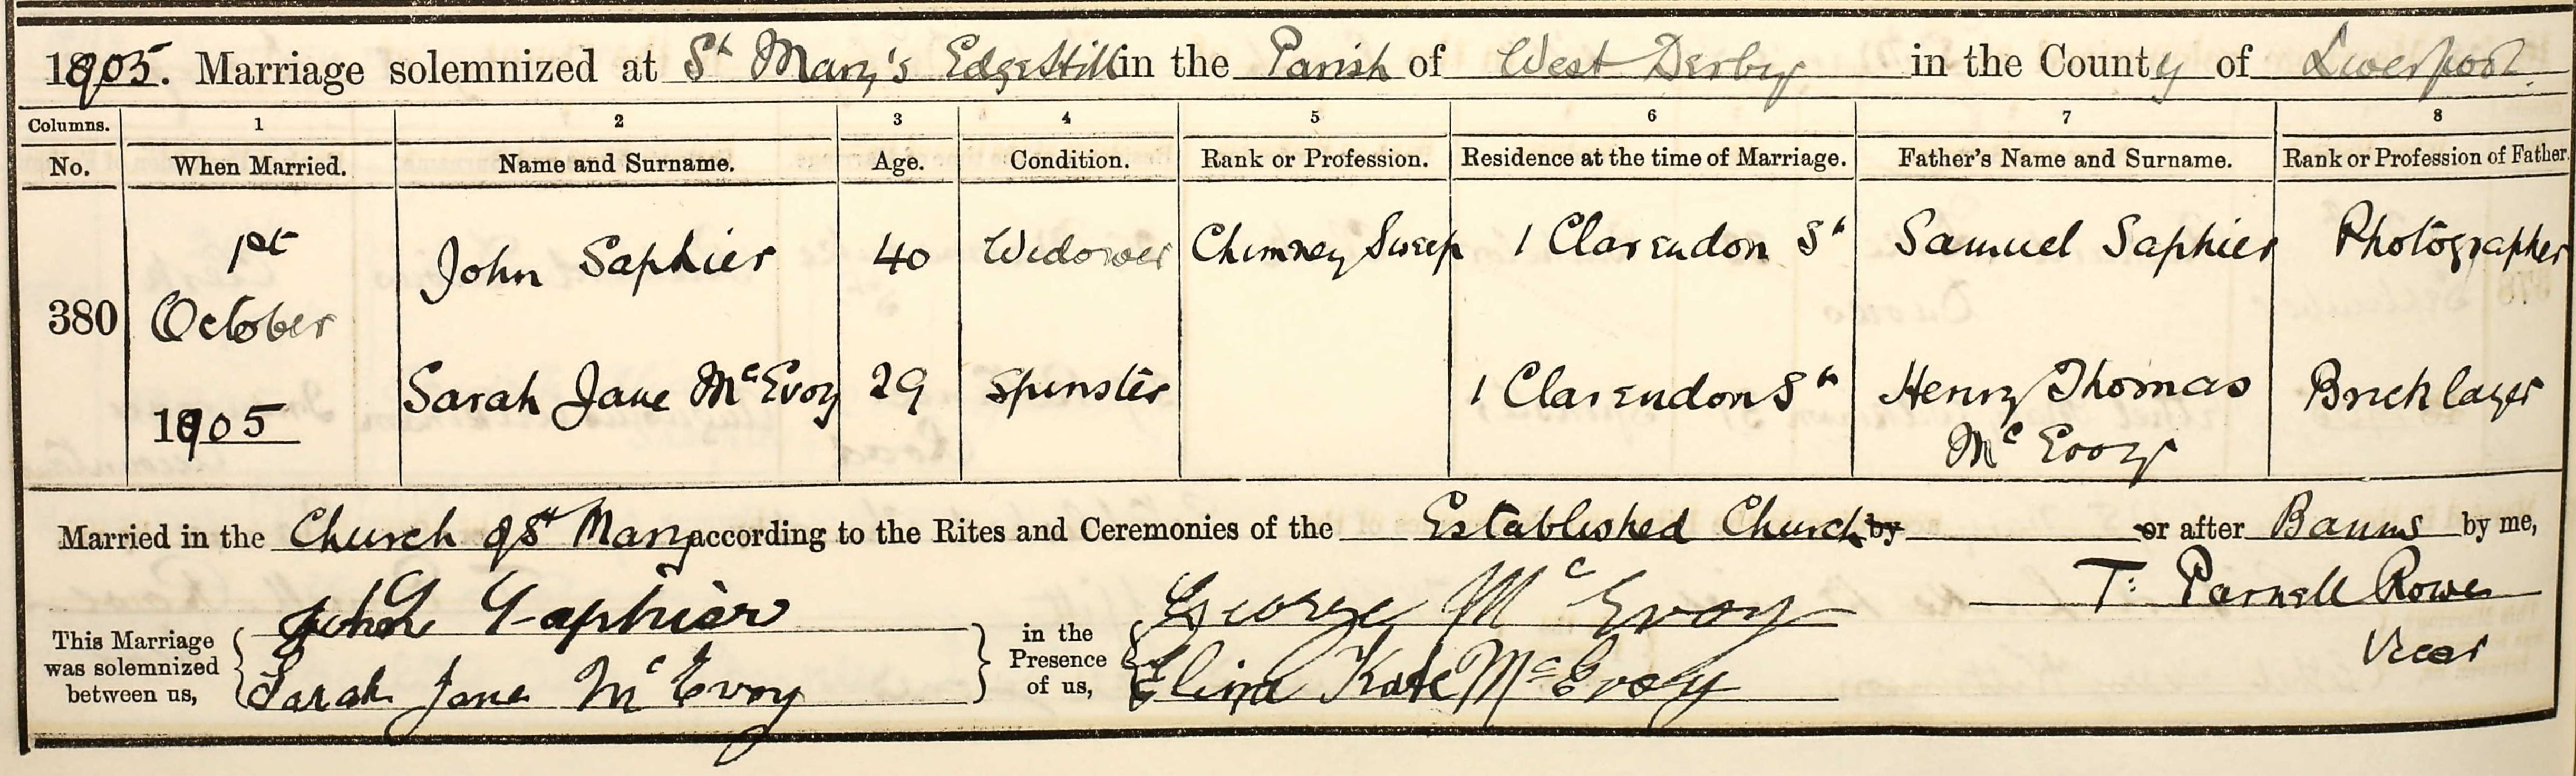 1905. Marriage solemnized at St Mary's Edge Hill in the Parish of West Derby in the County of Liverpool.
Columns. 1 2 3 4 5 6 7 8
No. When Married. Name and Surname. Age. Condition. Rank or Profession. Residence at the time of Marriage. Father's Name and Surname. Rank or Profession of Father.
1st John Saphier 40 Widower Chimney Sweep 1 Clarendon St Samuel Saphier Photographer
380 October
1905 Sarah Jane McEvoy 29 Spinster 1 Clarendon St Henry Thomas Bricklayer
McEvoy
Married in the Church of St Mary according to the Rites and Ceremonies of the Established Church by or after Banns by me,
John Saphier George McEvoy T. Parnell Rowe
This Marriage was solemnized between us, in the Presence of us, Vicar
Sarah Jane McEvoy Eliza Kate McEvoy